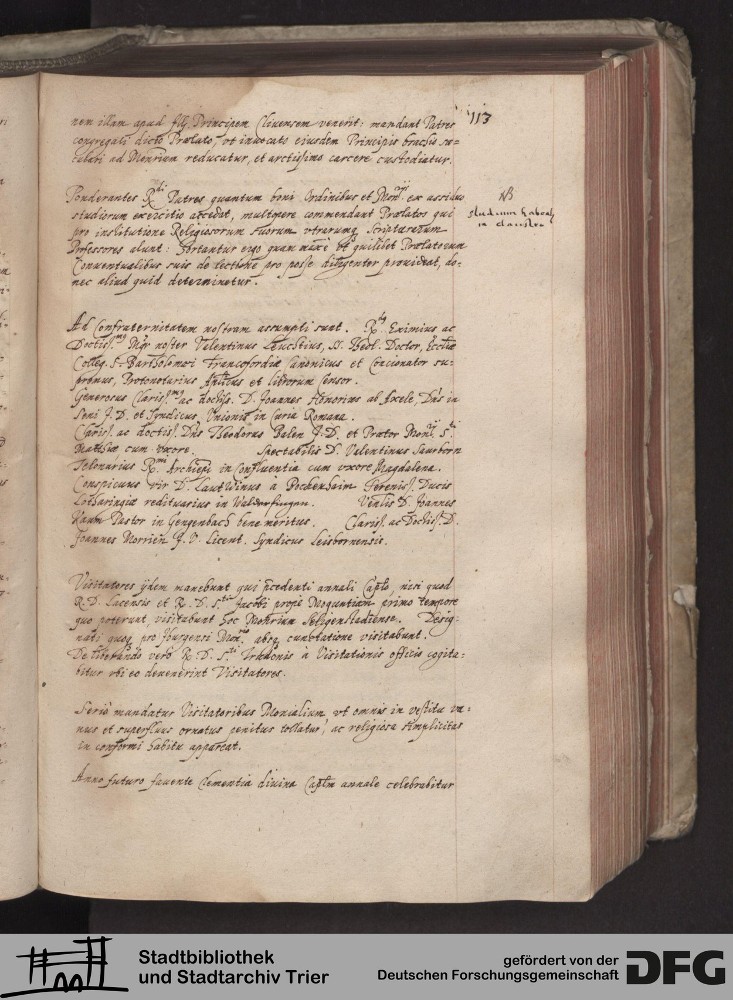 113
nem illam apud Ill. Principem Clivensem venerit: mandant Patres
congregati dicto Prælato, ut invocato eiusdem Principis brachio se=
culari ad Monrium reducatur, et arctissimo carcere custodiatur.
Ponderantes Rdi Patres quantum boni Ordinibus et Monrijs ex assiduo
studiorum exercitio accedat, multopere commendant Prælatos qui
pro institutione Religiosorum suorum utrarumq Scripturarum
Professores alunt: Hortantur ergo quam maxi ut quilibet Prælatorum
Conventualibus suis de lectione pro posse diligenter provideat, do=
nec aliud quid determinetur.
NB
studium habeatur
in claustro
Ad Confraternitatem nostram assumpti sunt. Rdus Eximius ac
Doctiss.mus Mgr noster Valentinus Leucstius, SS. Theol. Doctor, Ecclæ
Colleg. S. Bartholomæi Francofordiæ Canonicus et Concionator su=
premus, Protonotarius Aplicus et librorum Censor.
Generosus Clariss.mus ac doctiss. D. Joannes Honorius ab Axele, Dns in
Seni J.D. et Syndicus, Unionis in Curia Romana.
Clariss. ac doctiss. Dns Theodorus Balen J.D. et Prætor Monrij S.ti
Matthiæ cum uxore. Spectabilis D. Valentinus Sauerborn
Telonarius Rmi Archiepi in Confluentia cum uxore Magdalena.
Conspicuus vir D. Lautwinus à Bockenhaim Sereniss. Ducis
Lotharingiæ redituarius in Walderfingen. Venlis D. Joannes
Raum Pastor in Gengenbach bene meritus. Clariss. ac Doctiss. D.
Joannes Morrien J.V. Licent. Syndicus Leisbornensis.
Visitatores ijdem manebunt qui præcedenti annali Caplo, nisi quod
R.D. Lacensis et R.D. S.ti Jacobi prope Moguntiam primo tempore
quo poterunt, visitabunt hoc Monrium Seligenstadiense. Desig=
nati quoq pro Hugsensi Monrio absq cunctatione visitabunt.
Deliberando verò R.D. S.ti Trudonis à Visitationis officio cogita=
bitur ubi eo devenerint Visitatores.
Seriò mandatur Visitatoribus Monialium, ut omnis in vestitu va=
nus et superfluus ornatus penitus tollatur, ac religiosa simplicitas
in conformi habitu appareat.
Anno futuro favente Clementia divina Caplm annale celebrabitur
Stadtbibliothek
und Stadtarchiv Trier
gefördert von der
Deutschen Forschungsgemeinschaft
DFG